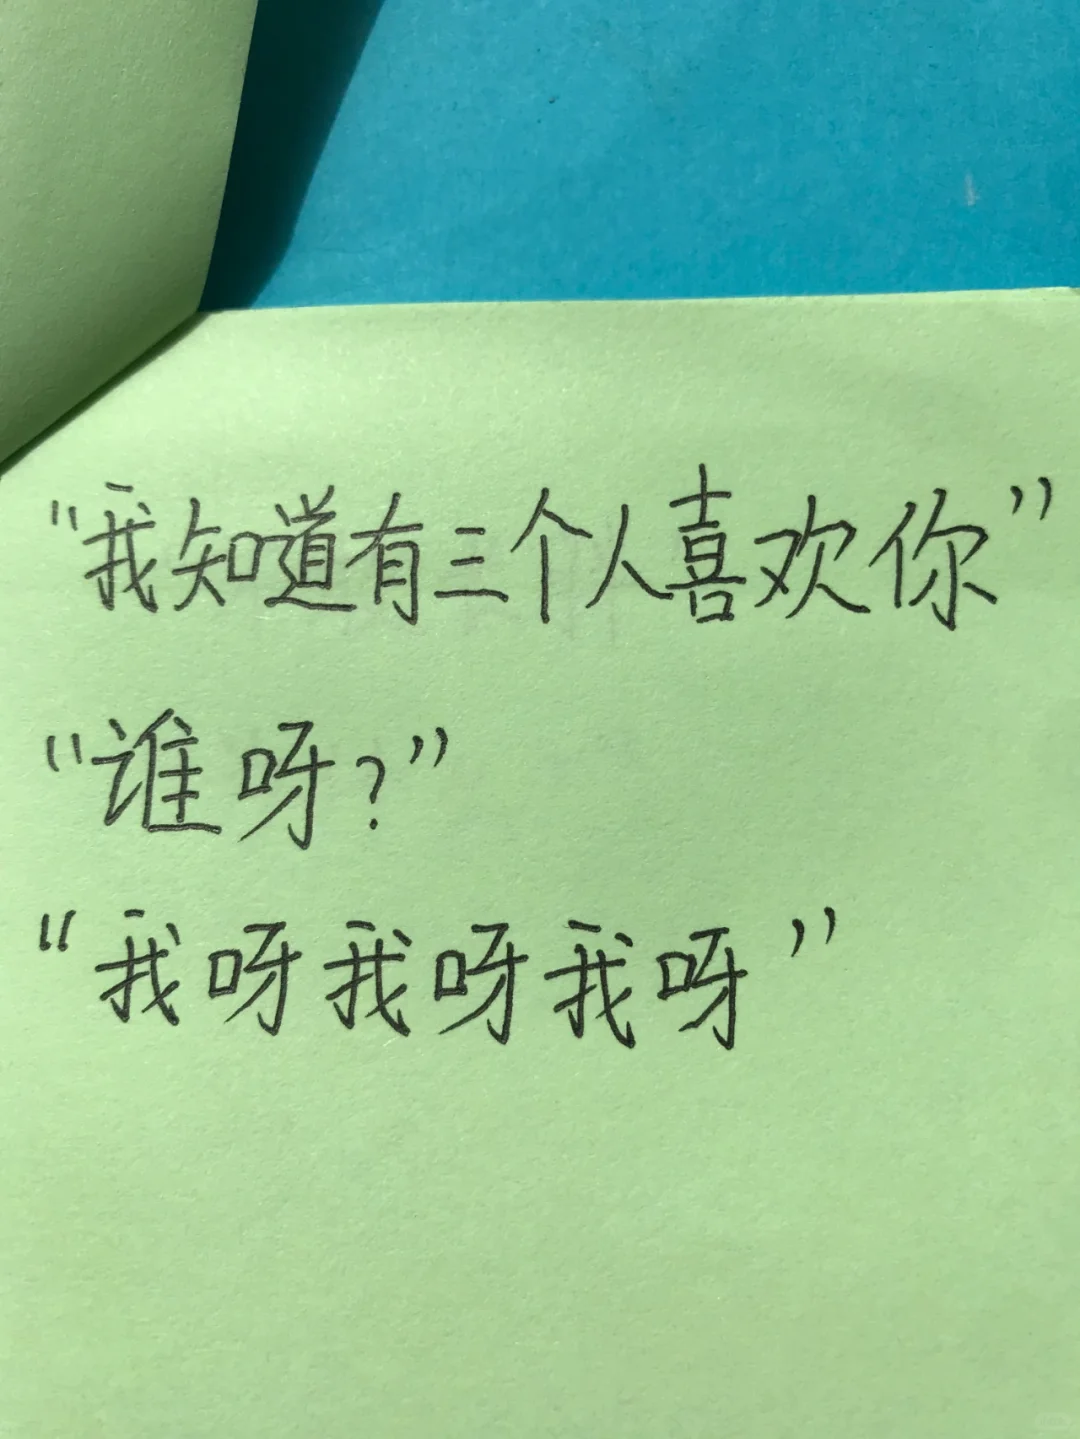 “我知道有三个人喜欢你”
“谁呀？”
“我呀我呀我呀”